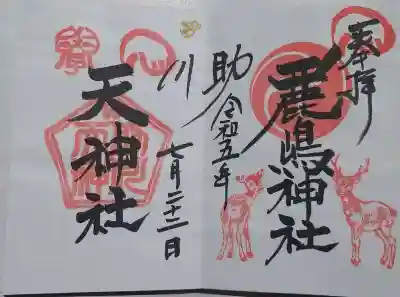 奉拝
鹿嶋神社
助川
令和五年
七月二十二日
天神社